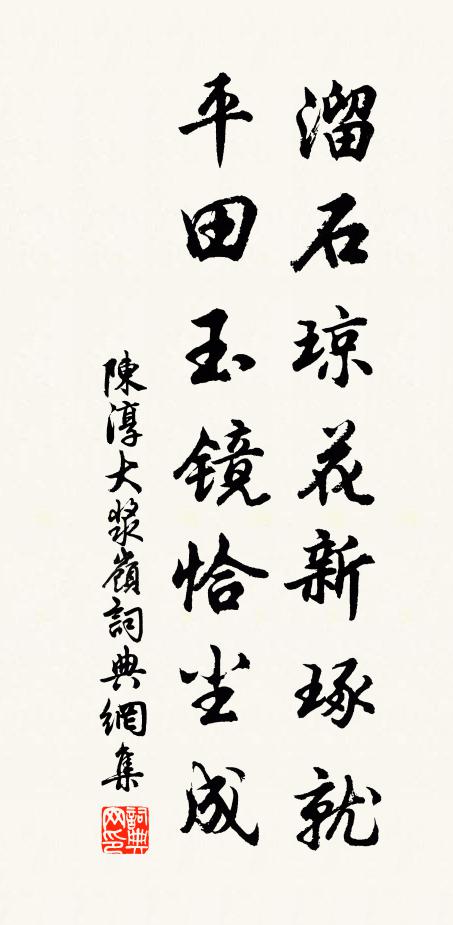 溜石琼花新琢就
平田玉镜恰尘成
陳淳大漿嶺詞典網集
詞典网印